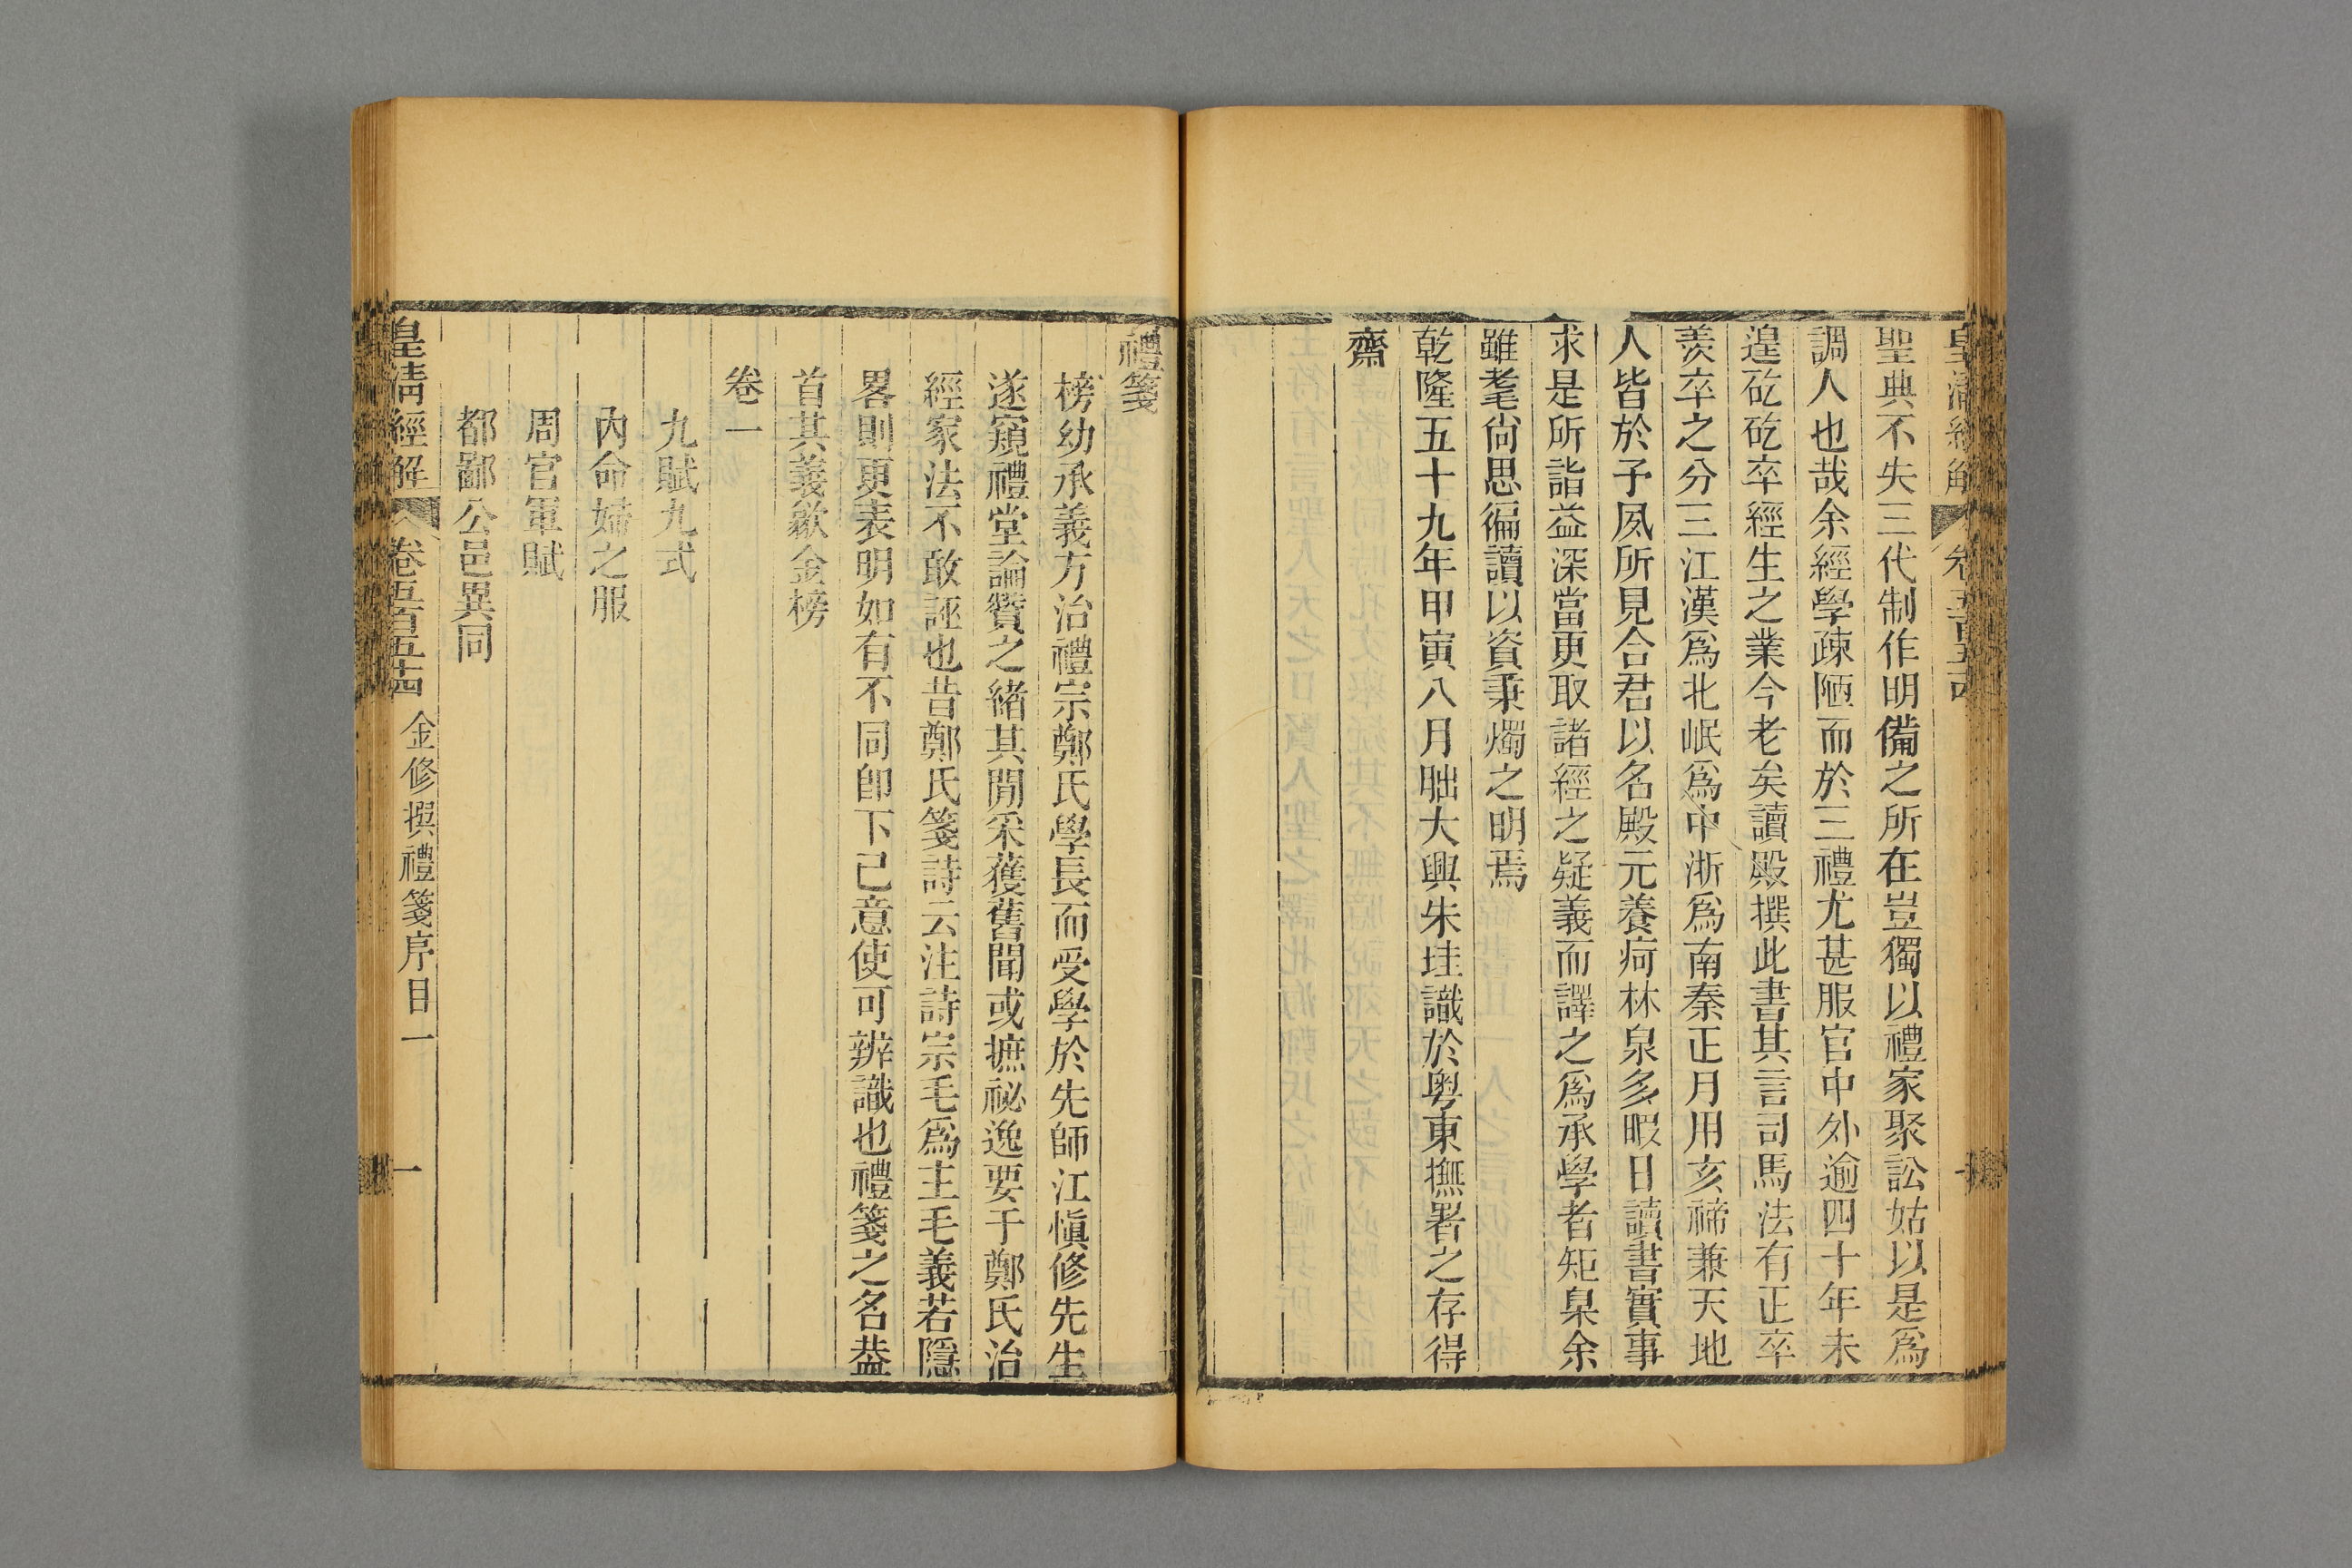 聖典不失三代制作明備之所在豈獨以禮家聚訟姑以是爲
調人也哉余經學疎陋而於三禮尤甚服官中外逾四十年未
遑矻矻卒經生之業今老矣讀殿撰此書其言司馬法有正卒
羨卒之分三江漢爲北岷爲中浙爲南秦正月用亥禘兼天地
人皆於予夙所見合君以名殿元養疴林泉多暇日讀書實事
求是所詣益深當更取諸經之疑義而譯之爲承學者矩臬余
雖耄尙思徧讀以資秉燭之明焉
乾隆五十九年甲寅八月朏大興朱珪識於粤東撫署之存得
齋
禮箋
榜幼承義方治禮宗鄭氏學長而受學於先師江愼修先生
遂窺禮堂論贊之緒其閒采獲舊聞或摭祕逸要于鄭氏治
經家法不敢誣也昔鄭氏箋詩云注詩宗毛爲主毛義若隱
畧則更表明如有不同卽下己意使可辨識也禮箋之名葢
首其義歙金榜
卷一
九賦九式
內命婦之服
周官軍賦
都鄙公邑異同
皇清經解 卷五百五十四 金修撰禮箋序目一 一